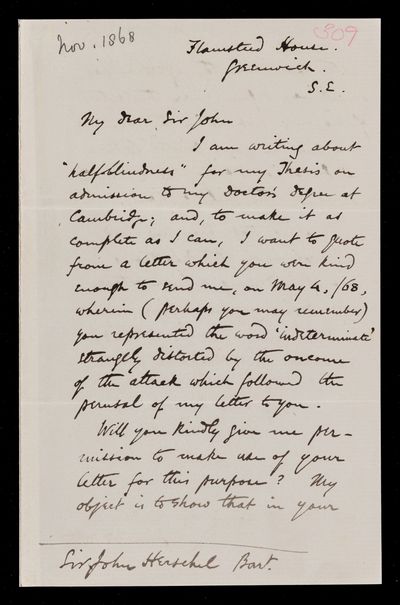 Nov. 1868
309
Flamsteed House.
Greenwich.
S.E.
My dear Sir John
I am writing about
"half-blindness" for my Thesis on
admission to my Doctor's Degree at
Cambridge; and, to make it as
complete as I can, I want to quote
from a letter which you were kind
enough to send me, on May 4, /68,
wherein (perhaps you may remember)
you represented the word 'indeterminate'
strangely distorted by the oncome
of the attack which followed the
perusal of my letter to you.
Will you kindly give me per-
mission to make use of your
letter for this purpose? My
object is to show that in your
Sir John Herschel Bart.